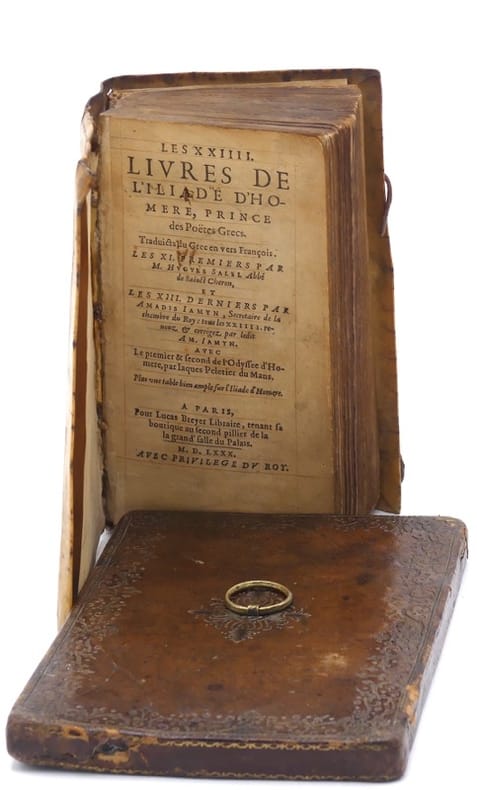 LES XXIIII.
LIVRES DE
L'ILIADE D'HO-
MERE, PRINCE
des Poëtes Grecs.
Traduicts du Grec en vers François.
LES XI. PREMIERS PAR
M. HVGVES SALEL Abbé
de Sainct Cheron,
ET
LES XIII. DERNIERS PAR
AMADIS IAMYN, Secretaire de la
chambre du Roy: tous les XXIIII. re-
ueuz & corrigez par ledit
AM. IAMYN.
AVEC
Le premier & second de l'Odyssee d'Ho-
mere, par Iaques Peletier du Mans.
Plus vne table bien ample sur l'Iliade d'Homere.
A PARIS,
Pour Lucas Breyer Libraire, tenant sa
boutique au second pillier de la
la grand' salle du Palais.
M. D. LXXX.
AVEC PRIVILEGE DV ROY.